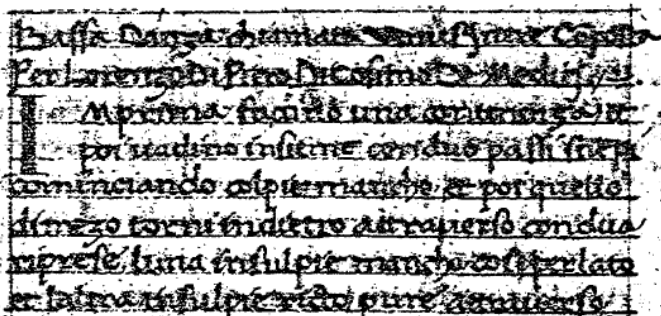 Bassa Danza chiamata Venus intere Composta
Per Lorenzo di Piero di Cosimo de Medici
IMprima facino una contenenza et
poi vadino insieme con duo passi
cominciando col pie mancho et poi quello
di mezo torni indietro attraverso con dua
riprese luna in sul pie mancho cosi per lato
et laltra in sul pie ricto pure atraverso